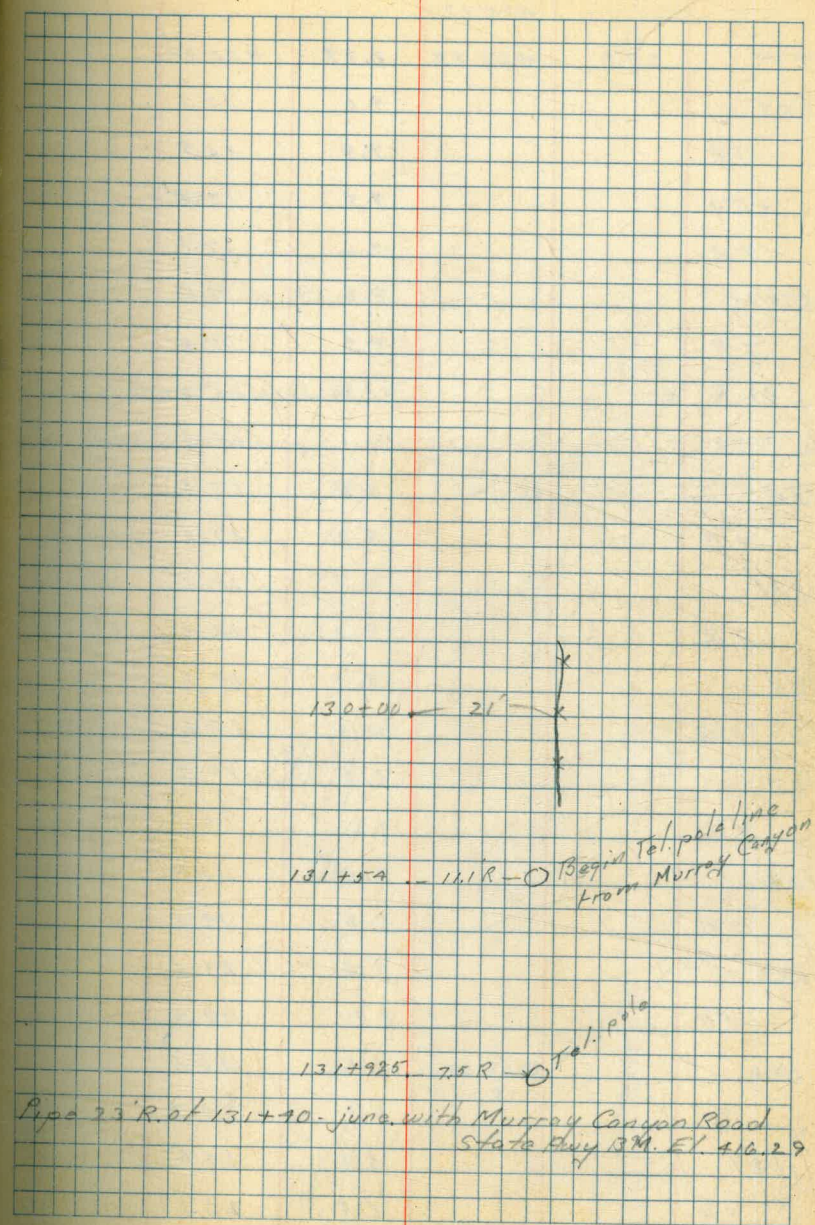 130+00 21'
131+54 11.1'R Begin Tel. pole line
from Murray Canyon
131+925 7.5 R Tel. pole
Pipe 23' R. of 131+40 - junc. with Murray Canyon Road
State Hwy B.M. El. 416.29